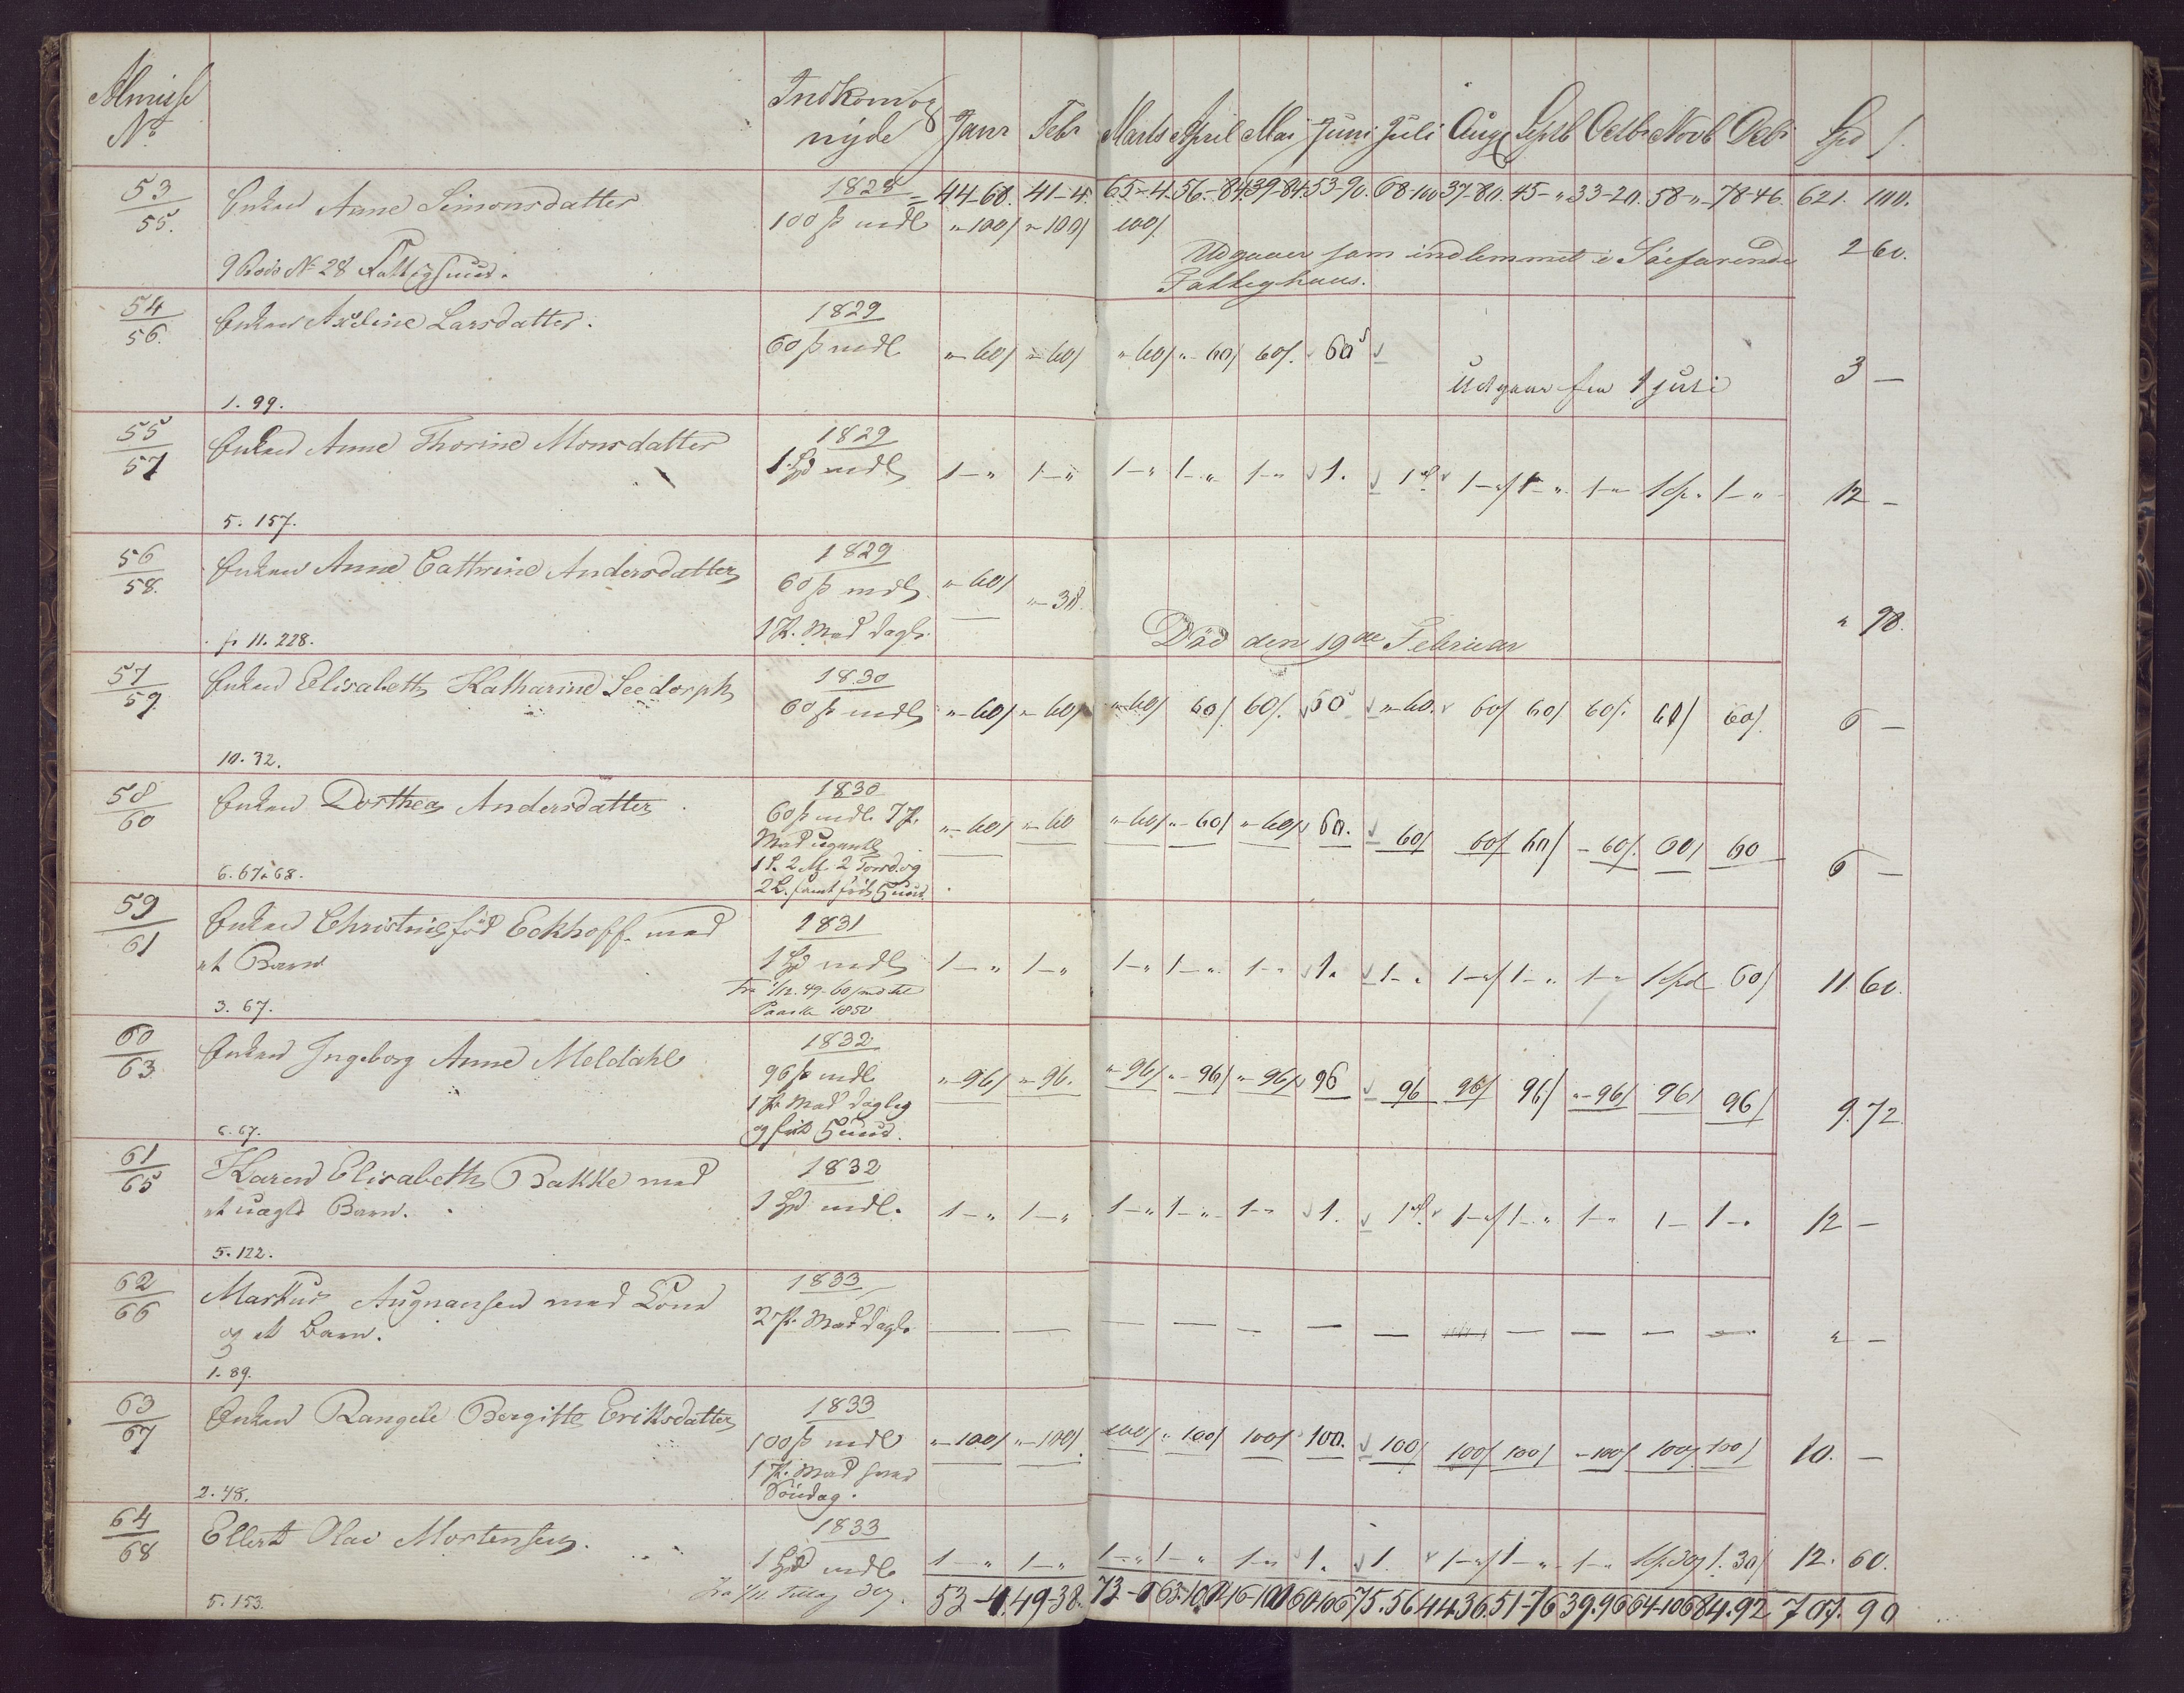 Almisse
No
Indkom og
nyde
Janr Febr Marts April Mai Juni Juli Aug Septb Octbr Novb Decbr Spd s.
53
55.
Enken Anne Simonsdatter
9 Rode No 28 Fattighuus.
1828
100 s mdl
44-60. 41-4. 65-4. 56-84. 39-84. 53-90. 68-100 37-80. 45-" 33-20. 58-"- 78-46. 621. 100.
"-100s "-100s 100s
Udgaaer som indlemmet i Søefarendes
Fattighuus.
2 60.
54
56.
Enken Axeline Larsdatter.
1. 99.
1829
60 s mdl
"-60s "-60s "-60s "-60s 60s. 60s
Udgaar fra 1 Juli
3 —
55
57
Enken Anne Thorine Monsdatter
5. 157.
1829
1 Spd mdl
1-" 1-" 1-" 1-" 1-" 1. 1 1-" 1-" 1-" 1 sp. 1-"
12 —
56
58.
Enken Anne Cathrine Andersdatter
11. 228.
1829
60 s mdl.
1 P. Mad dagl.
"-60s "-38.
Død den 19de Februar
" 98.
57
59
Enken Elisabeth Katharine Seedorph
10. 32.
1830
60 s mdl
"-60s "-60s "-60s 60s 60s. 60s "-60. 60s 60s 60s. 60s 60s.
6 —
58
60
Enken Dorthea Andersdatter
6. 67 & 68.
1830
60 s mdl. 7 P.
Mad ugentl
1 S. 2 M. 2 Torsd. og
2 L. samt frit Huus.
"-60s "-60 "-60s "-60s "-60s 60. 60s 60s 60s -60s. 60s 60
6 —
59
61
Enken Christine fød Eckhoff med
et Barn
3. 67.
1831
1 Spd mdl
Fra 1/12. 49 - 60 s md til
Paaske 1850
1-" 1-" 1-" 1-" 1-" 1. 1-" 1-" 1-" 1-" 1 spd 60s
11 60.
60
63
Enken Ingeborg Anne Meldahl
6. 67.
1832
96 s mdl
1 P. Mad daglig
og frit Huus.
"-96s "-96. "-96s "-96s "-96s 96 96 96s 96s "-96s 96s 96s
9. 72.
61
65
Karen Elisabeth Bakke med
et uægte Barn.
5. 122.
1832
1 Spd mdl.
1-" 1-" 1-" 1-" 1-" 1. 1 1-" 1-" 1-" 1- 1-"
12 —
62
66
Markus Augnansen med Kone
og et Barn.
1. 89.
1833
2 P. Mad dagl.
— — — — — — — — — — —
" —
63
67
Enken Rangele Bergitte Eriksdatter
2. 48.
1833
100 s mdl
1 P. Mad hver
Søndag.
"-100s "-100s 100s "100s 100s 100. 100s 100s 100s "-100s 100s 100s
10. —
64
68
Ellert Olai Mortensen.
5. 153.
1833
1 Spd mdl
Fra 1/11. Tillæg 30s.
1-" 1-" 1-" 1-" 1-" 1. 1. 1-" 1-" 1-" 1 sp. 30s 1. 30s
12. 60.
53-4. 49-38. 73-0 63-100 46-100 60-106 75. 56 44. 36. 51-76 39. 96 64-106 84. 92 707. 90